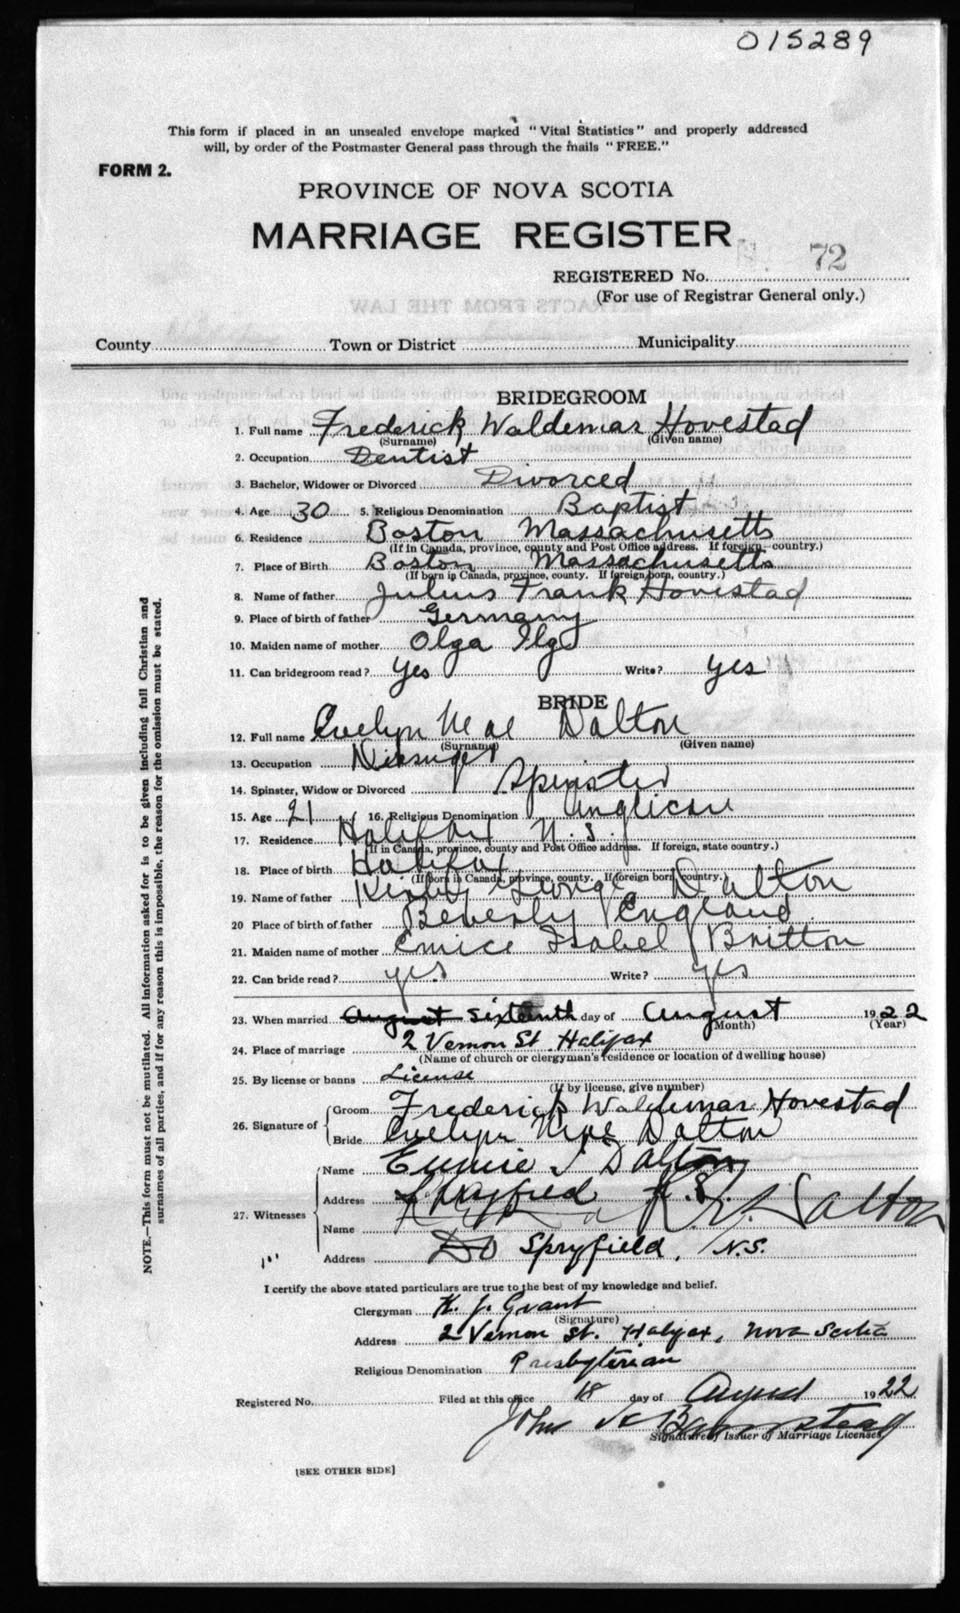 015289
This form if placed in an unsealed envelope marked "Vital Statistics" and properly addressed
will, by order of the Postmaster General pass through the mails "FREE."
FORM 2.
PROVINCE OF NOVA SCOTIA
MARRIAGE REGISTER
REGISTERED No. 72
(For use of Registrar General only.)
County Town or District Municipality
BRIDEGROOM
1. Full name Frederick Waldemar Hovestad
(Surname) (Given name)
2. Occupation Dentist
3. Bachelor, Widower or Divorced Divorced
4. Age 30 5. Religious Denomination Baptist
6. Residence Boston Massachusetts
(If in Canada, province, county and Post Office address. If foreign, country.)
7. Place of Birth Boston Massachusetts
(If born in Canada, province, county. If foreign born, country.)
8. Name of father Julius Frank Hovestad
9. Place of birth of father Germany
10. Maiden name of mother Olga Ilg
11. Can bridegroom read? Yes Write? yes
BRIDE
12. Full name Evelyn Mae Dalton
(Surname) (Given name)
13. Occupation
14. Spinster, Widow or Divorced Spinster
15. Age 21 16. Religious Denomination Anglican
17. Residence Halifax N.S.
(If in Canada, province, county and Post Office address. If foreign, state country.)
18. Place of birth Halifax
(If born in Canada, province, county. If foreign born, country.)
19. Name of father George Dalton
20 Place of birth of father Beverly England
21. Maiden name of mother Isabel Britton
22. Can bride read? yes Write? yes
23. When married August sixteenth day of August 1922
(Month) (Year)
24. Place of marriage 2 Vernon St. Halifax
(Name of church or clergyman's residence or location of dwelling house)
25. By license or banns License
(If by license, give number)
26. Signature of Groom Frederick Waldemar Hovestad
Bride Evelyn Mae Dalton
27. Witnesses Name Eunice I Dalton
Address Spryfield N.S.
Name Dalton
Address Do Spryfield, N.S.
I certify the above stated particulars are true to the best of my knowledge and belief.
Clergyman K. J. Grant
(Signature)
Address 2 Vernon St. Halifax, Nova Scotia
Religious Denomination Presbyterian
Registered No. Filed at this office 18 day of August 1922
John
Signature of Issuer of Marriage Licenses
[SEE OTHER SIDE]
NOTE.—This form must not be mutilated. All information asked for is to be given including full Christian and
surnames of all parties, and if for any reason this is impossible, the reason for the omission must be stated.